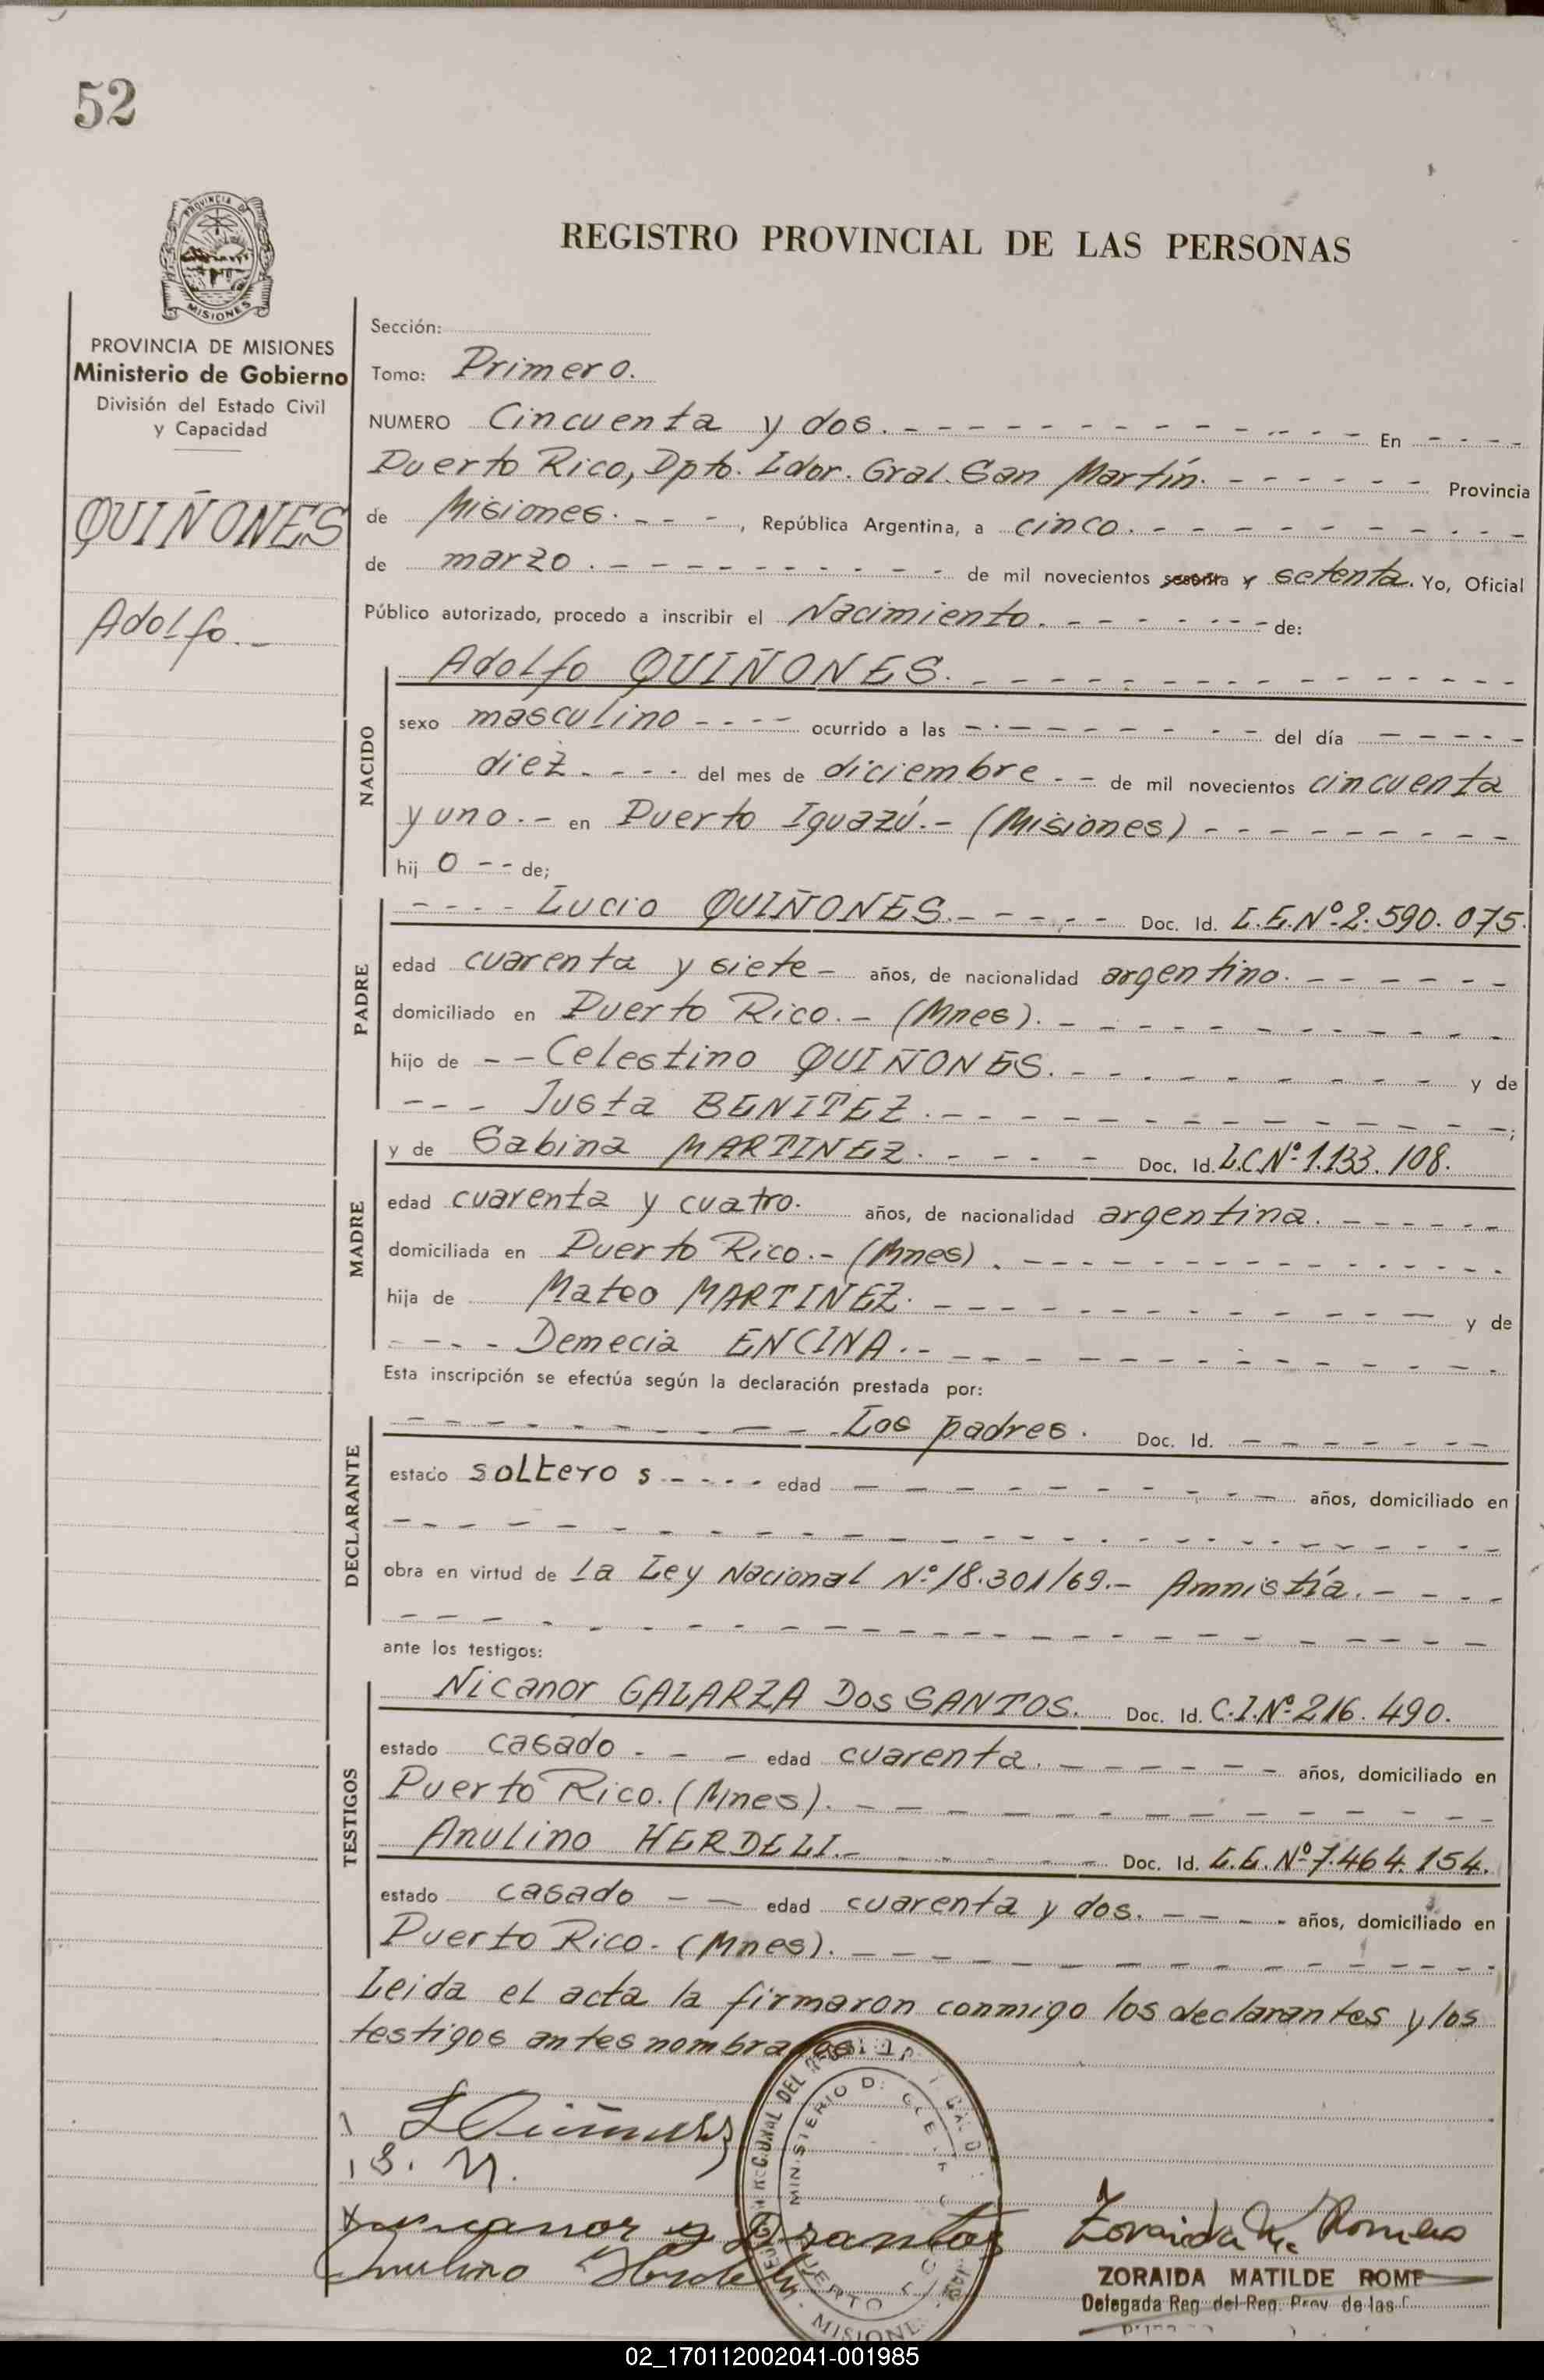 52
PROVINCIA DE MISIONES
REGISTRO PROVINCIAL DE LAS PERSONAS
PROVINCIA DE MISIONES
Ministerio de Gobierno
División del Estado Civil
y Capacidad
QUIÑONES
Adolfo.-
Sección:
Tomo: Primero.
NUMERO Cincuenta y dos. - - - En - - -
Puerto Rico, Dpto. Ldor. Gral. San Martín. - - - Provincia
de Misiones. - - -, República Argentina, a cinco. - - -
de marzo. - - - de mil novecientos sesenta y setenta. Yo, Oficial
Público autorizado, procedo a inscribir el Nacimiento. - - - de:
NACIDO
Adolfo QUIÑONES. - - -
sexo masculino - - - ocurrido a las - - - del día - - -
diez. - - - del mes de diciembre. - - de mil novecientos cincuenta
y uno. - en Puerto Iguazú. - (Misiones) - - -
hij o - - de;
PADRE
- - - Lucio QUIÑONES. - - - Doc. Id. L.E.Nº 2.590.075.
edad cuarenta y siete - años, de nacionalidad argentino. - - -
domiciliado en Puerto Rico. - (Mnes). - - -
hijo de - - Celestino QUIÑONES. - - - y de
- - - Justa BENITEZ. - - -;
MADRE
y de Sabina MARTINEZ. - - - Doc. Id. L.C.Nº 1.133.108.
edad cuarenta y cuatro. años, de nacionalidad argentina. - - -
domiciliada en Puerto Rico. - (Mnes). - - -
hija de Mateo MARTINEZ. - - - y de
- - - Demecia ENCINA. - - -
Esta inscripción se efectúa según la declaración prestada por:
DECLARANTE
- - - Los padres. Doc. Id. - - -
estado soltero s - - - edad - - - años, domiciliado en
- - -
obra en virtud de la Ley Nacional Nº 18.301/69.- Amnistía. - - -
- - -
ante los testigos:
TESTIGOS
Nicanor GALARZA DOS SANTOS. Doc. Id. C.I.Nº 216.490.
estado casado - - - edad cuarenta. - - - años, domiciliado en
Puerto Rico. (Mnes). - - -
Anulino HERDELI. - - - Doc. Id. L.E. Nº 7.464.154.
estado casado - - edad cuarenta y dos. - - - años, domiciliado en
Puerto Rico. (Mnes). - - -
Leida el acta la firmaron conmigo los declarantes y los
testigos antes nombrados
S. M.
Anulino Herdeli
Zoraida M. Romero
ZORAIDA MATILDE ROME
Delegada Reg. del Reg. Prov. de las
MINISTERIO
PUERTO
MISIONES
02_170112002041-001985